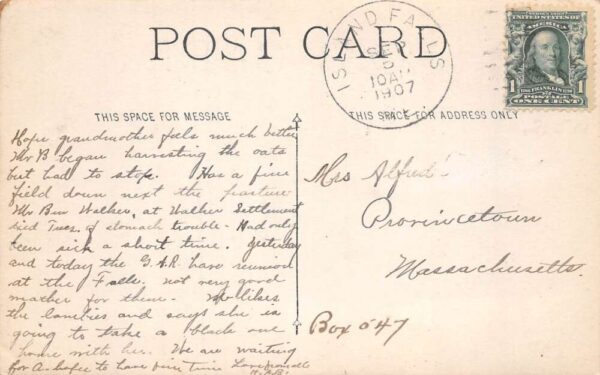 POST CARD
ISLAND FALLS
SEP
5
10AM
1907
UNITED STATES OF
AMERICA
1 1
FRANKLIN
POSTAGE
ONE CENT
THIS SPACE FOR MESSAGE
Hope grandmother feels much better
Mr B began harvesting the oats
but had to stop. Has a fine
field down next the pasture
Mr Ben Walker, at Walker Settlement
died Tues. of stomach trouble - Had only
been sick a short time. Yesterday
and today the G.A.R. have reunion
at the Falls. not very good
weather for them. likes
the lambies and says she is
going to take a black one
home with her. We are waiting
for A. hopes to have fine time Love from all
THIS SPACE FOR ADDRESS ONLY
Mrs Alfred
Provincetown
Massachusetts.
Box 547